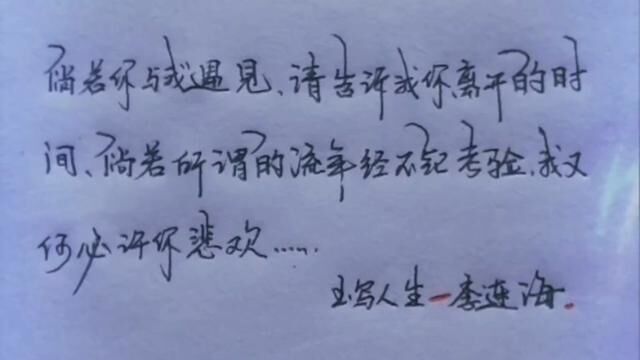 倘若你与我遇见、请告诉我你离开的时
间、倘若所谓的流年经不起考验、我又
何必许你悲欢……
玉写人生—李连海.